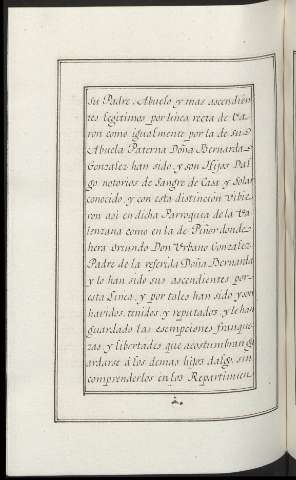 su Padre, Abuelo y mas ascendien
tes legitimos por linea recta de Va
ron como igualmente por la de su
Abuela Paterna Doña Bernarda
Gonzalez han sido y son Hijos Dal
go notorios de Sangre de Casa y Solar
conocido, y con esta distincion Vibie
ron asi en dicha Parroquia de la Va
lenzana como en la de Piñor dondes
hera oriundo Don Urbano Gonzalez
Padre de la referida Doña Bernarda
y lo han sido sus ascendientes por
esta Linea, y por tales han sido y son
havidos, tinidos y reputados, y le han
guardado las esempciones franque
zas y libertades que acostumbran gu
ardarse á los demas hijos dalgo, sin
comprenderlos en los Repartimien